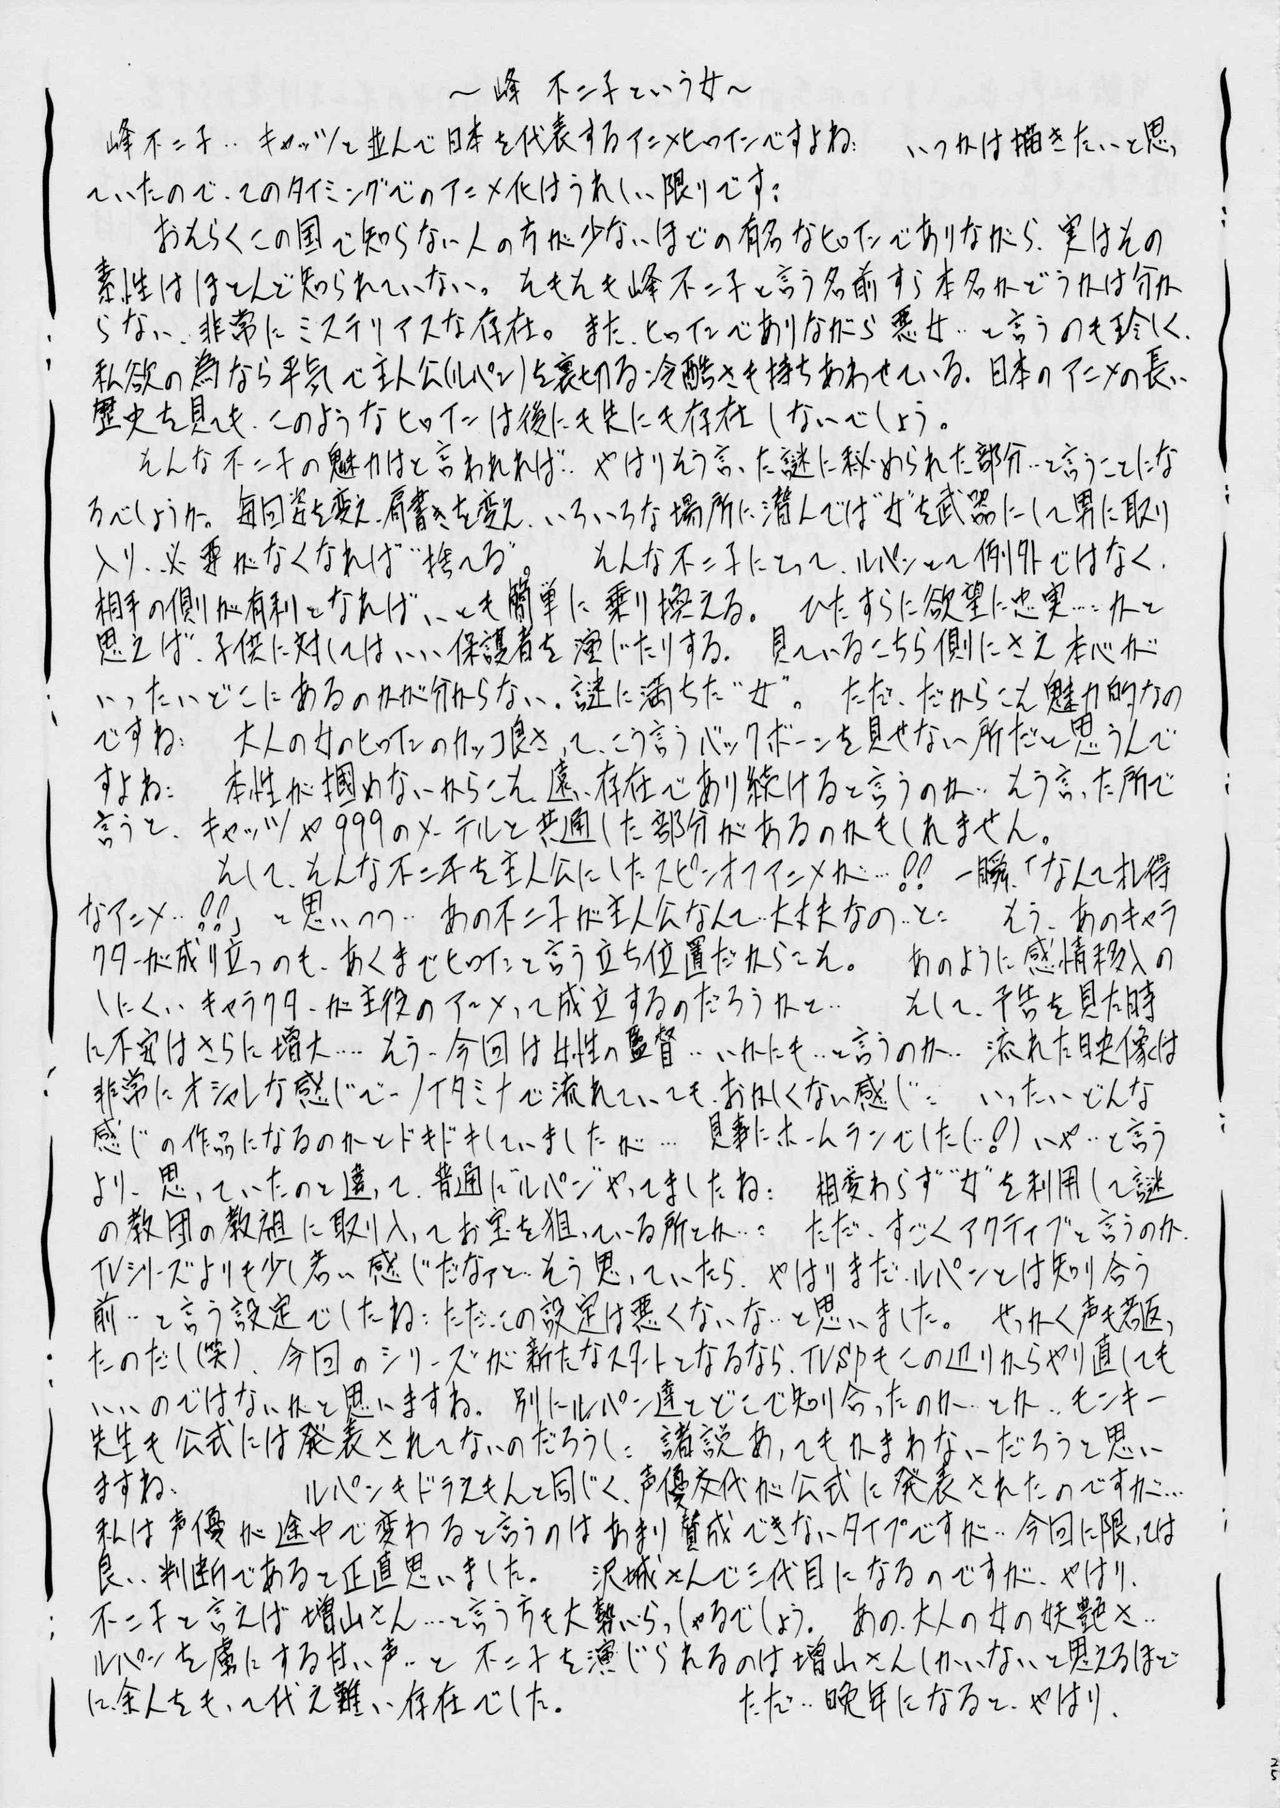 ～峰 不二子という女～
峰不二子‥キャッツと並んで日本を代表するアニメヒロインですよね: いつかは描きたいと思っ
ていたので、このタイミングでのアニメ化はうれしい限りです:
おそらくこの国で知らない人の方が少ないほどの有名なヒロインでありながら、実はその
素性はほとんど知られていない。そもそも峰不二子と言う名前すら本名かどうかは分か
らない、非常にミステリアスな存在。また、ヒロインでありながら悪女‥と言うのも珍しく、
私欲の為なら平気で主人公(ルパン)を裏切る冷酷さも持ちあわせている。日本のアニメの長い
歴史を見ても、このようなヒロインは後にも先にも存在しないでしょう。
そんな不二子の魅力はと言われれば‥やはりそう言った謎に秘められた部分‥と言うことにな
るでしょうか。毎回姿を変え、肩書きを変え、いろいろな場所に潜んでは“女”を武器にして男に取り
入り、必要がなくなれば“捨てる”。 そんな不二子にとって、ルパンとて例外ではなく、
相手の側が有利となれば、いとも簡単に乗り換える。 ひたすらに欲望に忠実…:かと
思えば、子供に対してはいい保護者を演じたりする。 見ているこちら側にさえ本心が
いったいどこにあるのかが分からない、謎に満ちた“女”。 ただ、だからこそ魅力的なの
ですね: 大人の女のヒロインのカッコ良さって、こう言うバックボーンを見せない所だと思うんで
すよね: 本性が掴めないからこそ、遠い存在であり続けると言うのか‥そう言った所で
言うと、キャッツや999のメーテルと共通した部分があるのかもしれません。
そして、そんな不二子を主人公にしたスピンオフアニメが…!! 一瞬、「なんてお得
なアニメ‥!!」と思いつつ‥あの不二子が主人公なんて‥大丈夫なの‥と: そう、あのキャラ
クターが成り立つのも、あくまでヒロインと言う立ち位置だからこそ。 あのように感情移入の
しにくいキャラクターが主役のアニメって成立するのだろうかと‥ そして、予告を見た時
に不安はさらに増大‥‥そう‥今回は女性の監督‥いかにも‥と言うのか‥流れた映像は
非常にオシャレな感じで‥ノイタミナで流れていても、おかしくない感じ: いったいどんな
感じの作品になるのかとドキドキしていましたが… 見事にホームランでした(‥!)いや‥と言う
より、思っていたのと違って、普通に“ルパン”やってましたね: 相変わらず“女”を利用して謎
の教団の教祖に取り入ってお宝を狙っている所とか‥: ただ、すごくアクティブと言うのか、
TVシリーズよりも少し若い感じだなァと‥そう思っていたら、やはりまだ、ルパンとは知り合う
前‥と言う設定でしたね:ただ、この設定は悪くないな‥と思いました。 せっかく声も若返っ
たのだし(笑)、今回のシリーズが新たなスタートとなるなら、TVSPもこの辺りからやり直しても
いいのではないかと思いますね。別にルパン達とどこで知り合ったのか‥とか‥モンキー
先生も公式には発表されてないのだろうし:諸説あってもかまわないだろうと思い
ますね。 ルパンもドラえもんと同じく、声優交代が公式に発表されたのですが…
私は声優が途中で変わると言うのはあまり賛成できないタイプですが‥今回に限っては
良い判断であると正直思いました。 沢城さんで三代目になるのですが、やはり、
不二子と言えば増山さん…と言う方も大勢いらっしゃるでしょう。 あの、大人の女の妖艶さ‥
ルパンを虜にする甘い声‥と 不二子を演じられるのは増山さんしかいないと思えるほど
に、余人をもって代え難い存在でした。 ただ‥晩年になると、やはり、
25